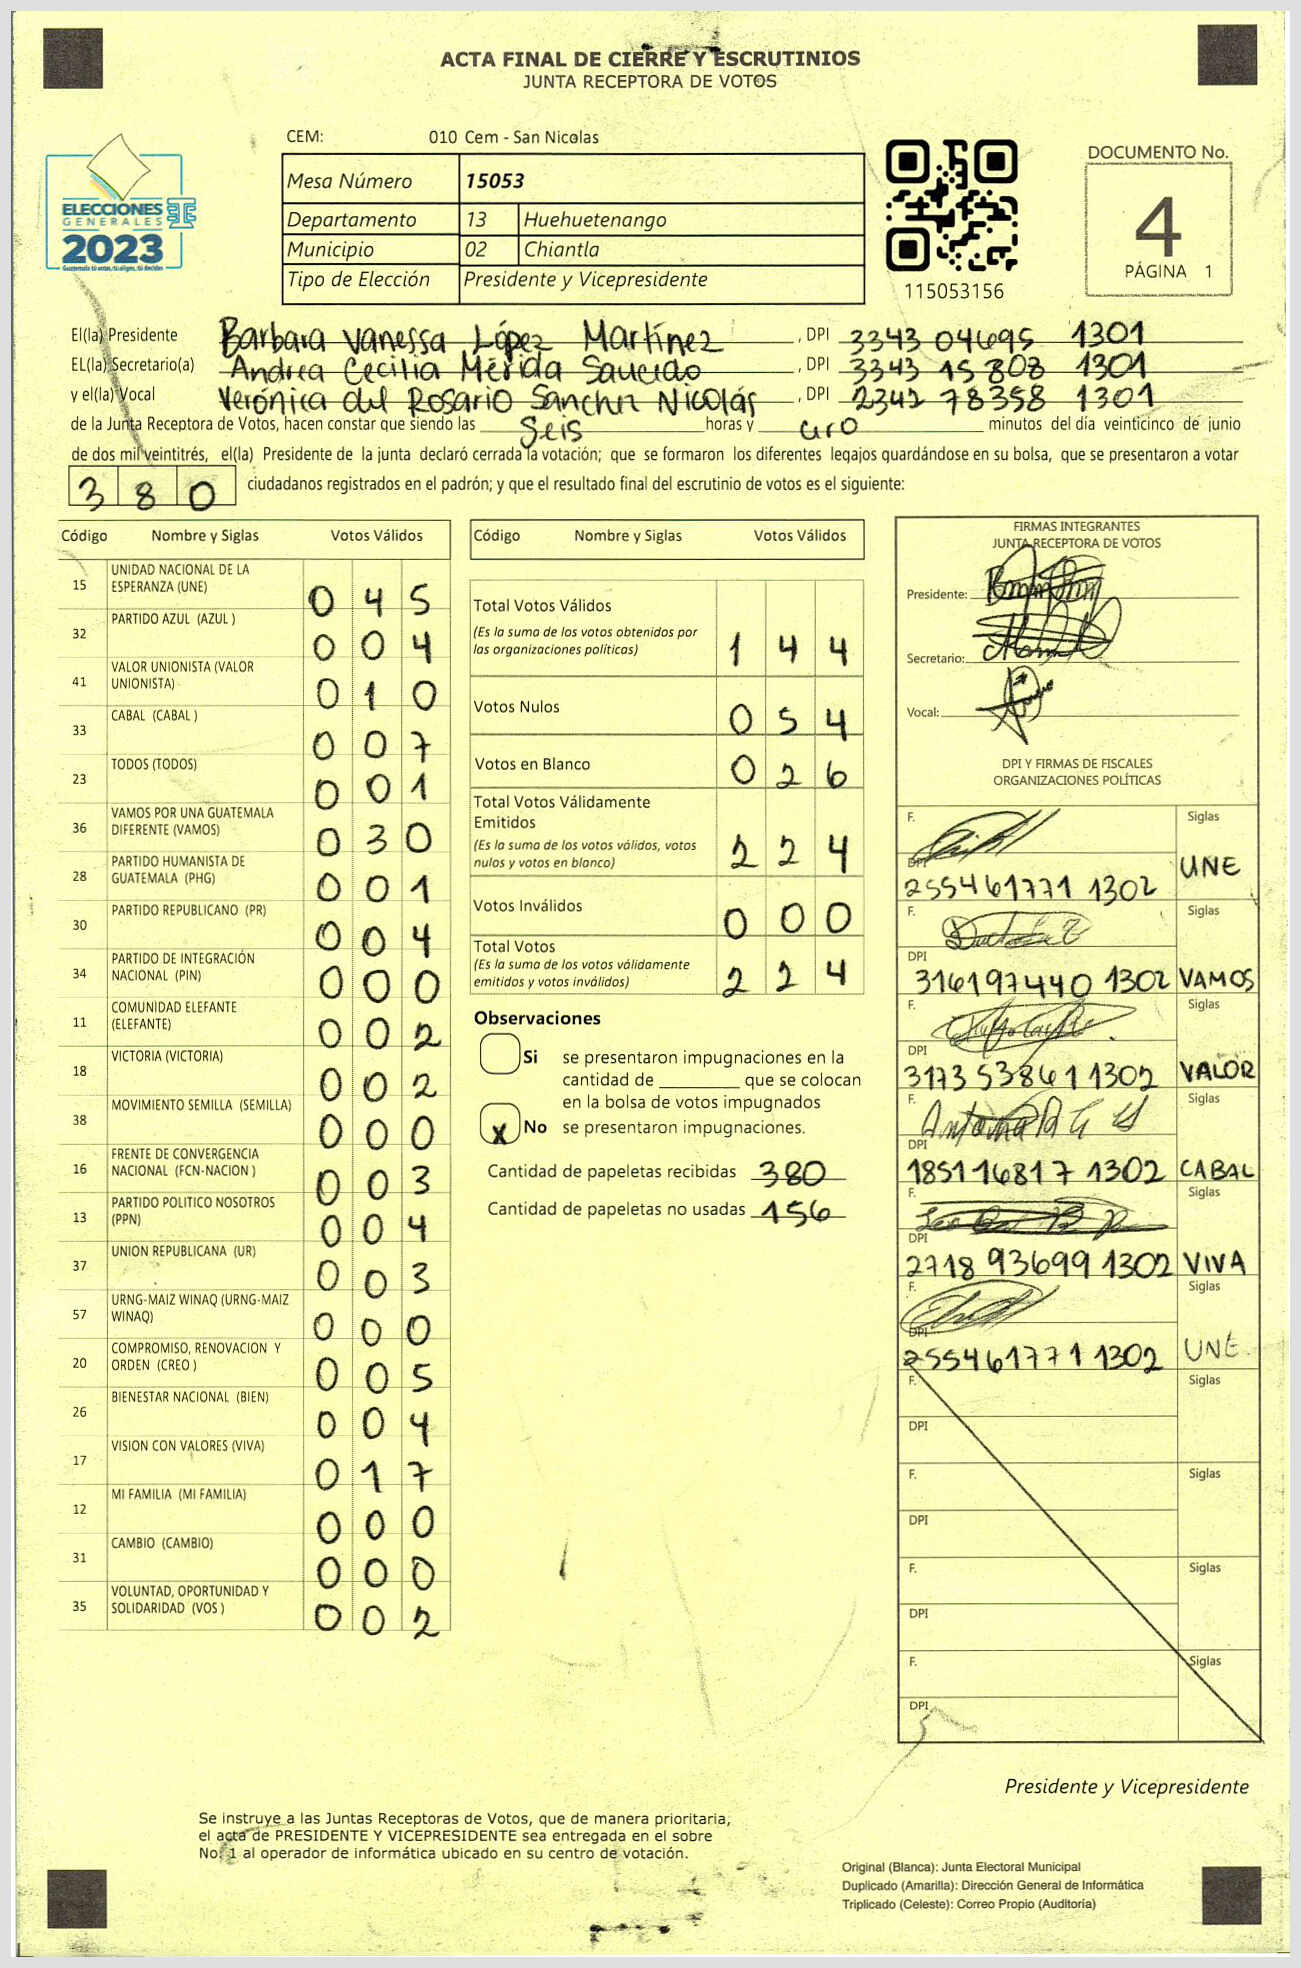 ACTA FINAL DE CIERRE Y ESCRUTINIOS
JUNTA RECEPTORA DE VOTOS
CEM: 010 Cem - San Nicolas
ELECCIONES
GENERALES
2023
Guatemala tú votas, tú eliges, tú decides
Mesa Número 15053
Departamento 13 Huehuetenango
Municipio 02 Chiantla
Tipo de Elección Presidente y Vicepresidente
115053156
DOCUMENTO No.
4
PÁGINA 1
El(la) Presidente Barbara Vanessa López Martínez, DPI 3343 04695 1301
EL(la) Secretario(a) Andrea Cecilia Mérida Saucedo, DPI 3343 15808 1301
y el(la) Vocal Verónica del Rosario Sánchez Nicolás, DPI 2342 78358 1301
de la Junta Receptora de Votos, hacen constar que siendo las Seis horas y cero minutos del día veinticinco de junio
de dos mil veintitrés, el(la) Presidente de la junta declaró cerrada la votación; que se formaron los diferentes legajos guardándose en su bolsa, que se presentaron a votar
380 ciudadanos registrados en el padrón; y que el resultado final del escrutinio de votos es el siguiente:
Código Nombre y Siglas Votos Válidos
15 UNIDAD NACIONAL DE LA ESPERANZA (UNE) 045
32 PARTIDO AZUL (AZUL ) 004
41 VALOR UNIONISTA (VALOR UNIONISTA) 010
33 CABAL (CABAL ) 007
23 TODOS (TODOS) 001
36 VAMOS POR UNA GUATEMALA DIFERENTE (VAMOS) 030
28 PARTIDO HUMANISTA DE GUATEMALA (PHG) 001
30 PARTIDO REPUBLICANO (PR) 004
34 PARTIDO DE INTEGRACIÓN NACIONAL (PIN) 000
11 COMUNIDAD ELEFANTE (ELEFANTE) 002
18 VICTORIA (VICTORIA) 002
38 MOVIMIENTO SEMILLA (SEMILLA) 000
16 FRENTE DE CONVERGENCIA NACIONAL (FCN-NACION ) 003
13 PARTIDO POLITICO NOSOTROS (PPN) 004
37 UNION REPUBLICANA (UR) 003
57 URNG-MAIZ WINAQ (URNG-MAIZ WINAQ) 000
20 COMPROMISO, RENOVACION Y ORDEN (CREO ) 005
26 BIENESTAR NACIONAL (BIEN) 004
17 VISION CON VALORES (VIVA) 017
12 MI FAMILIA (MI FAMILIA) 000
31 CAMBIO (CAMBIO) 000
35 VOLUNTAD, OPORTUNIDAD Y SOLIDARIDAD (VOS ) 002
Código Nombre y Siglas Votos Válidos
Total Votos Válidos 144
(Es la suma de los votos obtenidos por
las organizaciones políticas)
Votos Nulos 054
Votos en Blanco 026
Total Votos Válidamente
Emitidos 224
(Es la suma de los votos válidos, votos
nulos y votos en blanco)
Votos Inválidos 000
Total Votos 224
(Es la suma de los votos válidamente
emitidos y votos inválidos)
Observaciones
Si se presentaron impugnaciones en la
cantidad de ________ que se colocan
en la bolsa de votos impugnados
X No se presentaron impugnaciones.
Cantidad de papeletas recibidas 380
Cantidad de papeletas no usadas 156
FIRMAS INTEGRANTES
JUNTA RECEPTORA DE VOTOS
Presidente:
Secretario:
Vocal:
DPI Y FIRMAS DE FISCALES
ORGANIZACIONES POLÍTICAS
F. Siglas
DPI 255461771 1302 UNE
F. Siglas
DPI 316197440 1302 VAMOS
F. Siglas
DPI 3173 53861 1302 VALOR
F. Siglas
DPI 185116817 1302 CABAL
F. Siglas
DPI 2718 93699 1302 VIVA
F. Siglas
DPI 255461771 1302 UNE
F. Siglas
DPI
F. Siglas
DPI
F. Siglas
DPI
F. Siglas
DPI
Presidente y Vicepresidente
Se instruye a las Juntas Receptoras de Votos, que de manera prioritaria,
el acta de PRESIDENTE Y VICEPRESIDENTE sea entregada en el sobre
No. 1 al operador de informática ubicado en su centro de votación.
Original (Blanca): Junta Electoral Municipal
Duplicado (Amarilla): Dirección General de Informática
Triplicado (Celeste): Correo Propio (Auditoría)